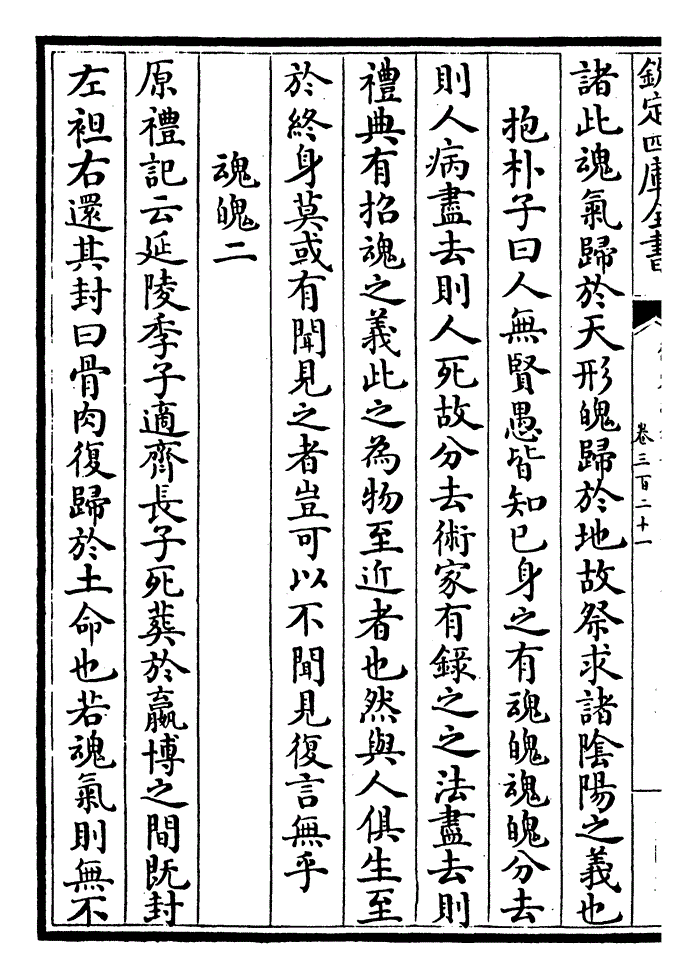 欽定四庫全書
卷三百二十一
諸此魂氣歸於天形魄歸於地故祭求諸陰陽之義也
抱朴子曰人無賢愚皆知已身之有魂魄魂魄分去
則人病盡去則人死故分去術家有錄之之法盡去則
禮典有招魂之義此之為物至近者也然與人俱生至
於終身莫或有聞見之者豈可以不聞見復言無乎
魂魄二
原禮記云延陵季子適齊長子死葬於嬴博之間既封
左袒右還其封曰骨肉復歸於土命也若魂氣則無不